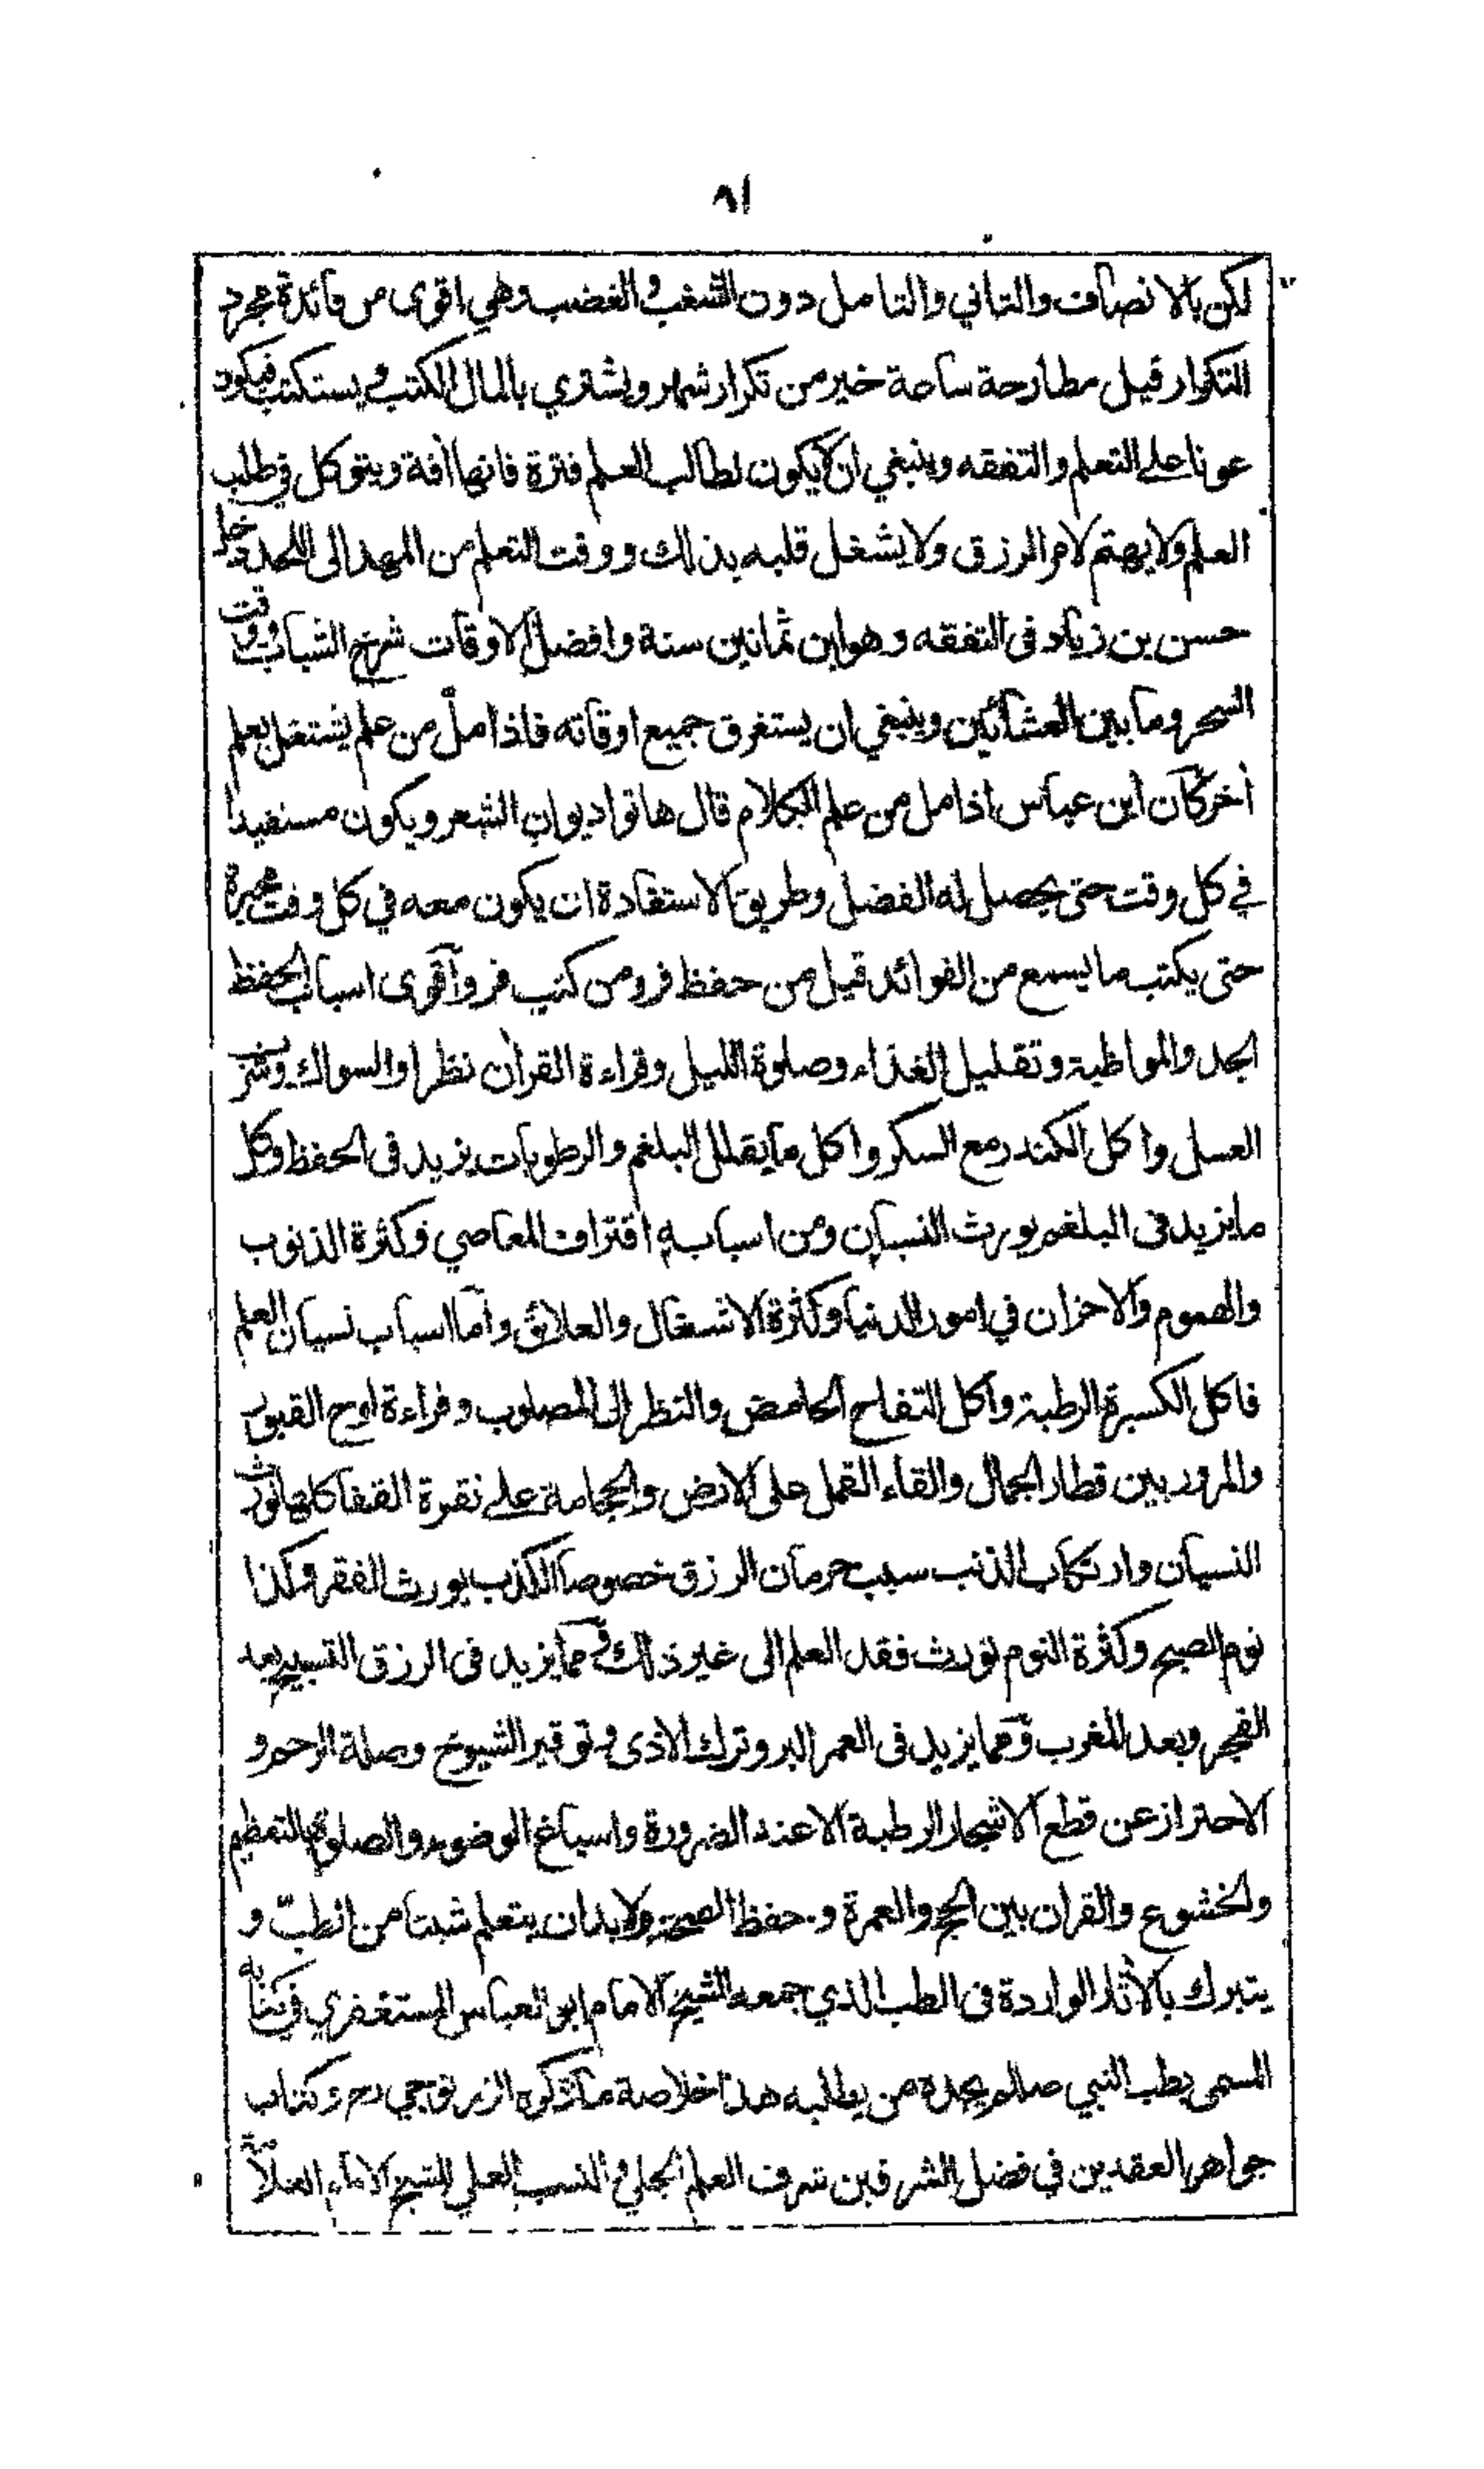 ٨١
لكن بالانصاف والتاني والتامل دون الشغب والغضب وهي اقوى من فائدة مجرد
التكرار قيل مطارحة ساعة خير من تكرار شهر ويشتري بالمال الكتب ويستكتب فيكون
عونا على التعلم والتفقه وينبغي ان لا يكون لطالب العلم فترة فانها أفة ويتوكل في طلب
العلم ولا يهتم لامر الرزق ولا يشغل قلبه بذلك ووقت التعلم من المهد الى اللحد دخل
حسن بن زياد فى التفقه وهو ابن ثمانين سنة وافضل الاوقات شرخ الشباب ووقت
السحر وما بين العشائين وينبغي ان يستغرق جميع اوقاته فاذا ملّ من علم يشتغل بعلم
أخر كان ابن عباس اذا مل من علم الكلام قال هاتوا ديوان الشعر ويكون مستفيدا
في كل وقت حتى يحصل له الفضل وطريق الاستفادة ان يكون معه في كل وقت محبرة
حتى يكتب ما يسمع من الفوائد قيل من حفظ فر ومن كتب قر وآقوى اسباب الحفظ
الجد والمواظبة وتقليل الغذاء وصلوة الليل وقراءة القرأن نظرا والسواك وشرب
العسل واكل الكندر مع السكر واكل ما يقلل البلغم والرطوبات يزيد فى الحفظ وكل
ما يزيد فى البلغم يورث النسيان ومن اسبابه اقتراف المعاصي وكثرة الذنوب
والهموم والاحزان في امور الدنيا وكثرة الاشتغال والعلائق وآما اسباب نسيان العلم
فاكل الكسبرة الرطبة واكل التفاح الحامض والنظر الى المصلوب وقراءة لوح القبور
والمرور بين قطار الجمال والقاء القمل على الارض والحجامة على نقرة القفا كلها تورث
النسيان وارتكاب الذنب سبب حرمان الرزق خصوصا الكذب يورث الفقر وكذا
نوم الصبح وكثرة النوم تورث فقد العلم الى غير ذلك ومما يزيد فى الرزق التسبيح بعد
الفجر وبعد المغرب ومما يزيد فى العمر البر وترك الاذى وتوقير الشيوخ وصلة الرحم و
الاحتراز عن قطع الاشجار الرطبة الا عند الضرورة واسباغ الوضوء والصلوة بالتعظيم
والخشوع والقران بين الحج والعمرة وحفظ الصحة ولا بد ان يتعلم شيئا من الطبّ و
يتبرك بالأثار الواردة فى الطب الذي جمعه الشيخ الامام ابو العباس المستغفري في كتابه
المسمى بطب النبي صللم يجده من يطلبه هذا خلاصة ما ذكره الزرنوجي رح وكتاب
جواهر العقدين في فضل الشرفين شرف العلم الجلي والنسب العلي للشيخ الامام العلامة